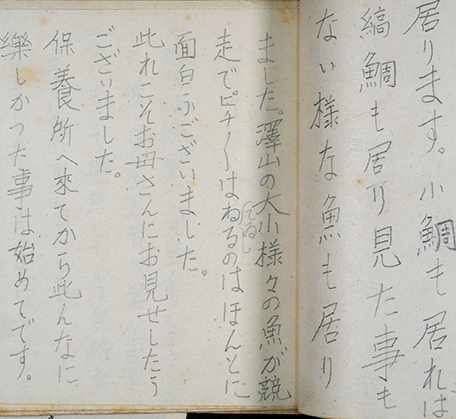 居ります。小鯛も居れは
縞鯛も居り見た事も
ない様な魚も居り
ました。澤山の大小様々の魚が競
走で。ピチ〳〵はねるのはほんとに
面白ふございました。
此れこそお母さんにお見せしたう
ございました。
保養所へ來てから此んなに
樂しかつた事は始めてです。